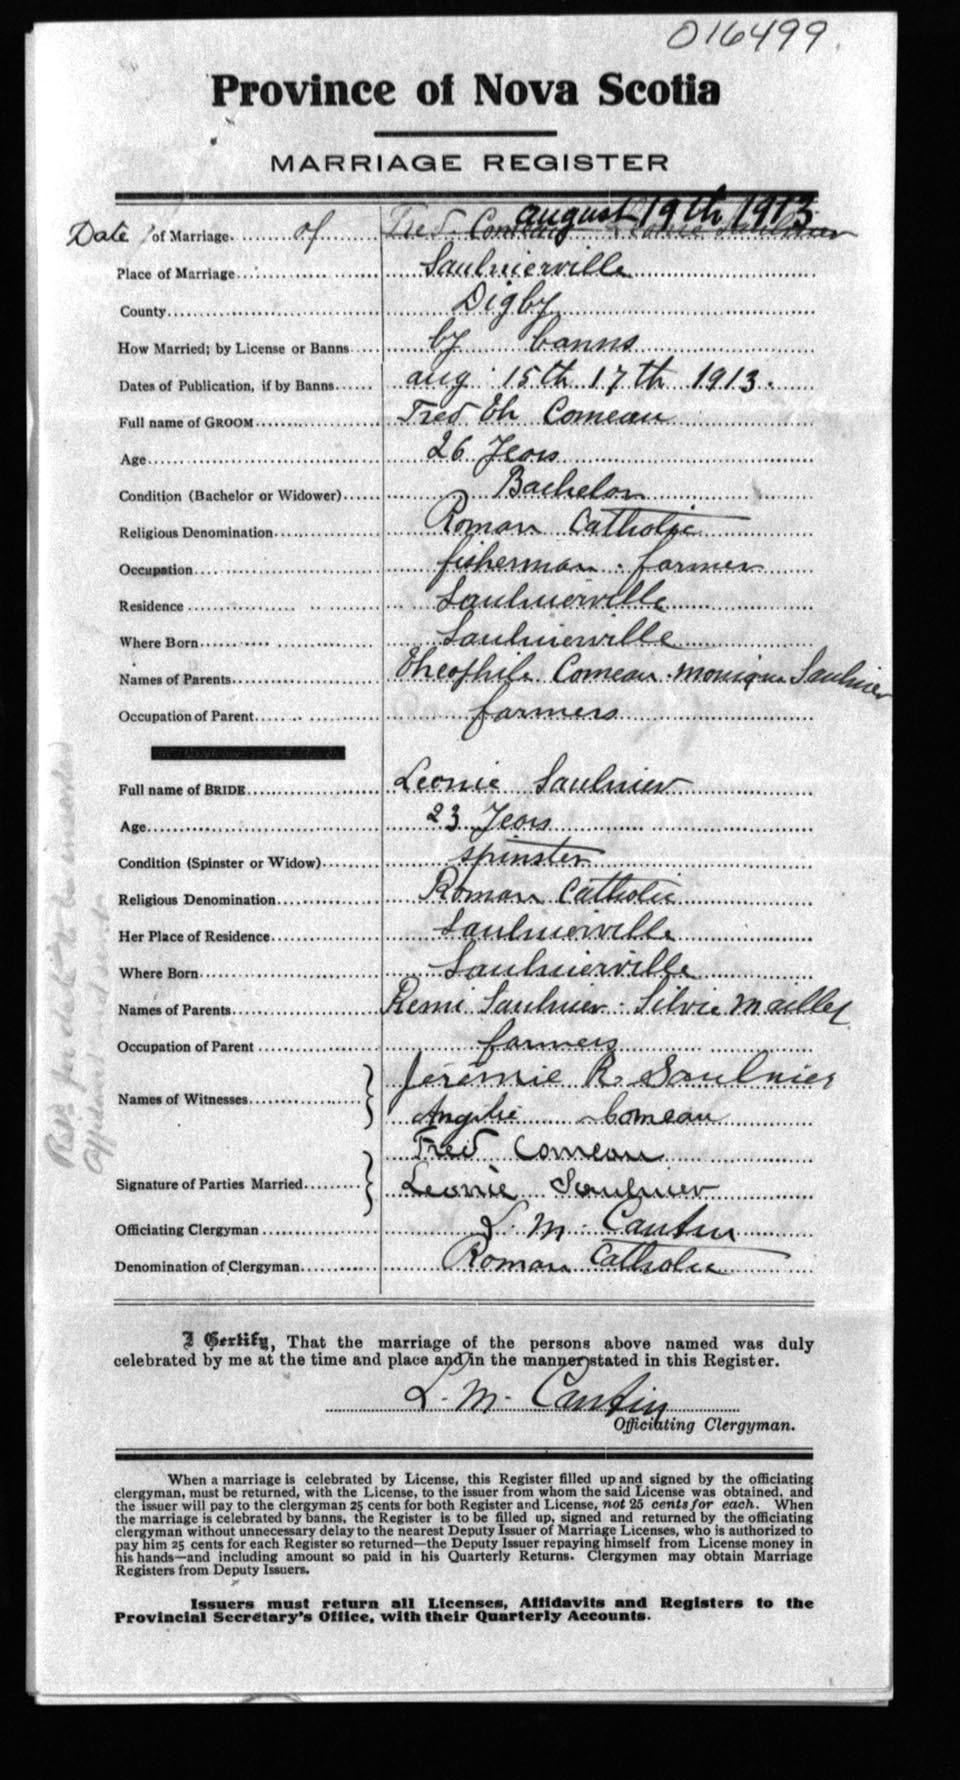 016499
Province of Nova Scotia
MARRIAGE REGISTER
august 19th 1913
Date of Marriage of Fred Comeau Leonie Saulnier
Place of Marriage Saulnierville
County Digby
How Married; by License or Banns by banns
Dates of Publication, if by Banns aug 15th 17th 1913.
Full name of GROOM Fred Th Comeau
Age 26 Years
Condition (Bachelor or Widower) Bachelor
Religious Denomination Roman Catholic
Occupation fisherman . farmer
Residence Saulnierville
Where Born Saulnierville
Names of Parents Theophile Comeau . Monique Saulnier
Occupation of Parent farmers
Full name of BRIDE Leonie Saulnier
Age 23 Years
Condition (Spinster or Widow) spinster
Religious Denomination Roman Catholic
Her Place of Residence Saulnierville
Where Born Saulnierville
Names of Parents Remi Saulnier . Silvie Maillet
Occupation of Parent farmers
Names of Witnesses Jérémie R. Saulnier
Angelie Comeau
Fred Comeau
Signature of Parties Married Leonie Saulnier
Officiating Clergyman L. M. Cantin
Denomination of Clergyman Roman Catholic
I Certify, That the marriage of the persons above named was duly
celebrated by me at the time and place and in the manner stated in this Register.
L. M. Cantin
Officiating Clergyman.
When a marriage is celebrated by License, this Register filled up and signed by the officiating
clergyman, must be returned, with the License, to the issuer from whom the said License was obtained, and
the issuer will pay to the clergyman 25 cents for both Register and License, not 25 cents for each. When
the marriage is celebrated by banns, the Register is to be filled up, signed and returned by the officiating
clergyman without unnecessary delay to the nearest Deputy Issuer of Marriage Licenses, who is authorized to
pay him 25 cents for each Register so returned—the Deputy Issuer repaying himself from License money in
his hands—and including amount so paid in his Quarterly Returns. Clergymen may obtain Marriage
Registers from Deputy Issuers.
Issuers must return all Licenses, Affidavits and Registers to the
Provincial Secretary's Office, with their Quarterly Accounts.
for date to be inserted